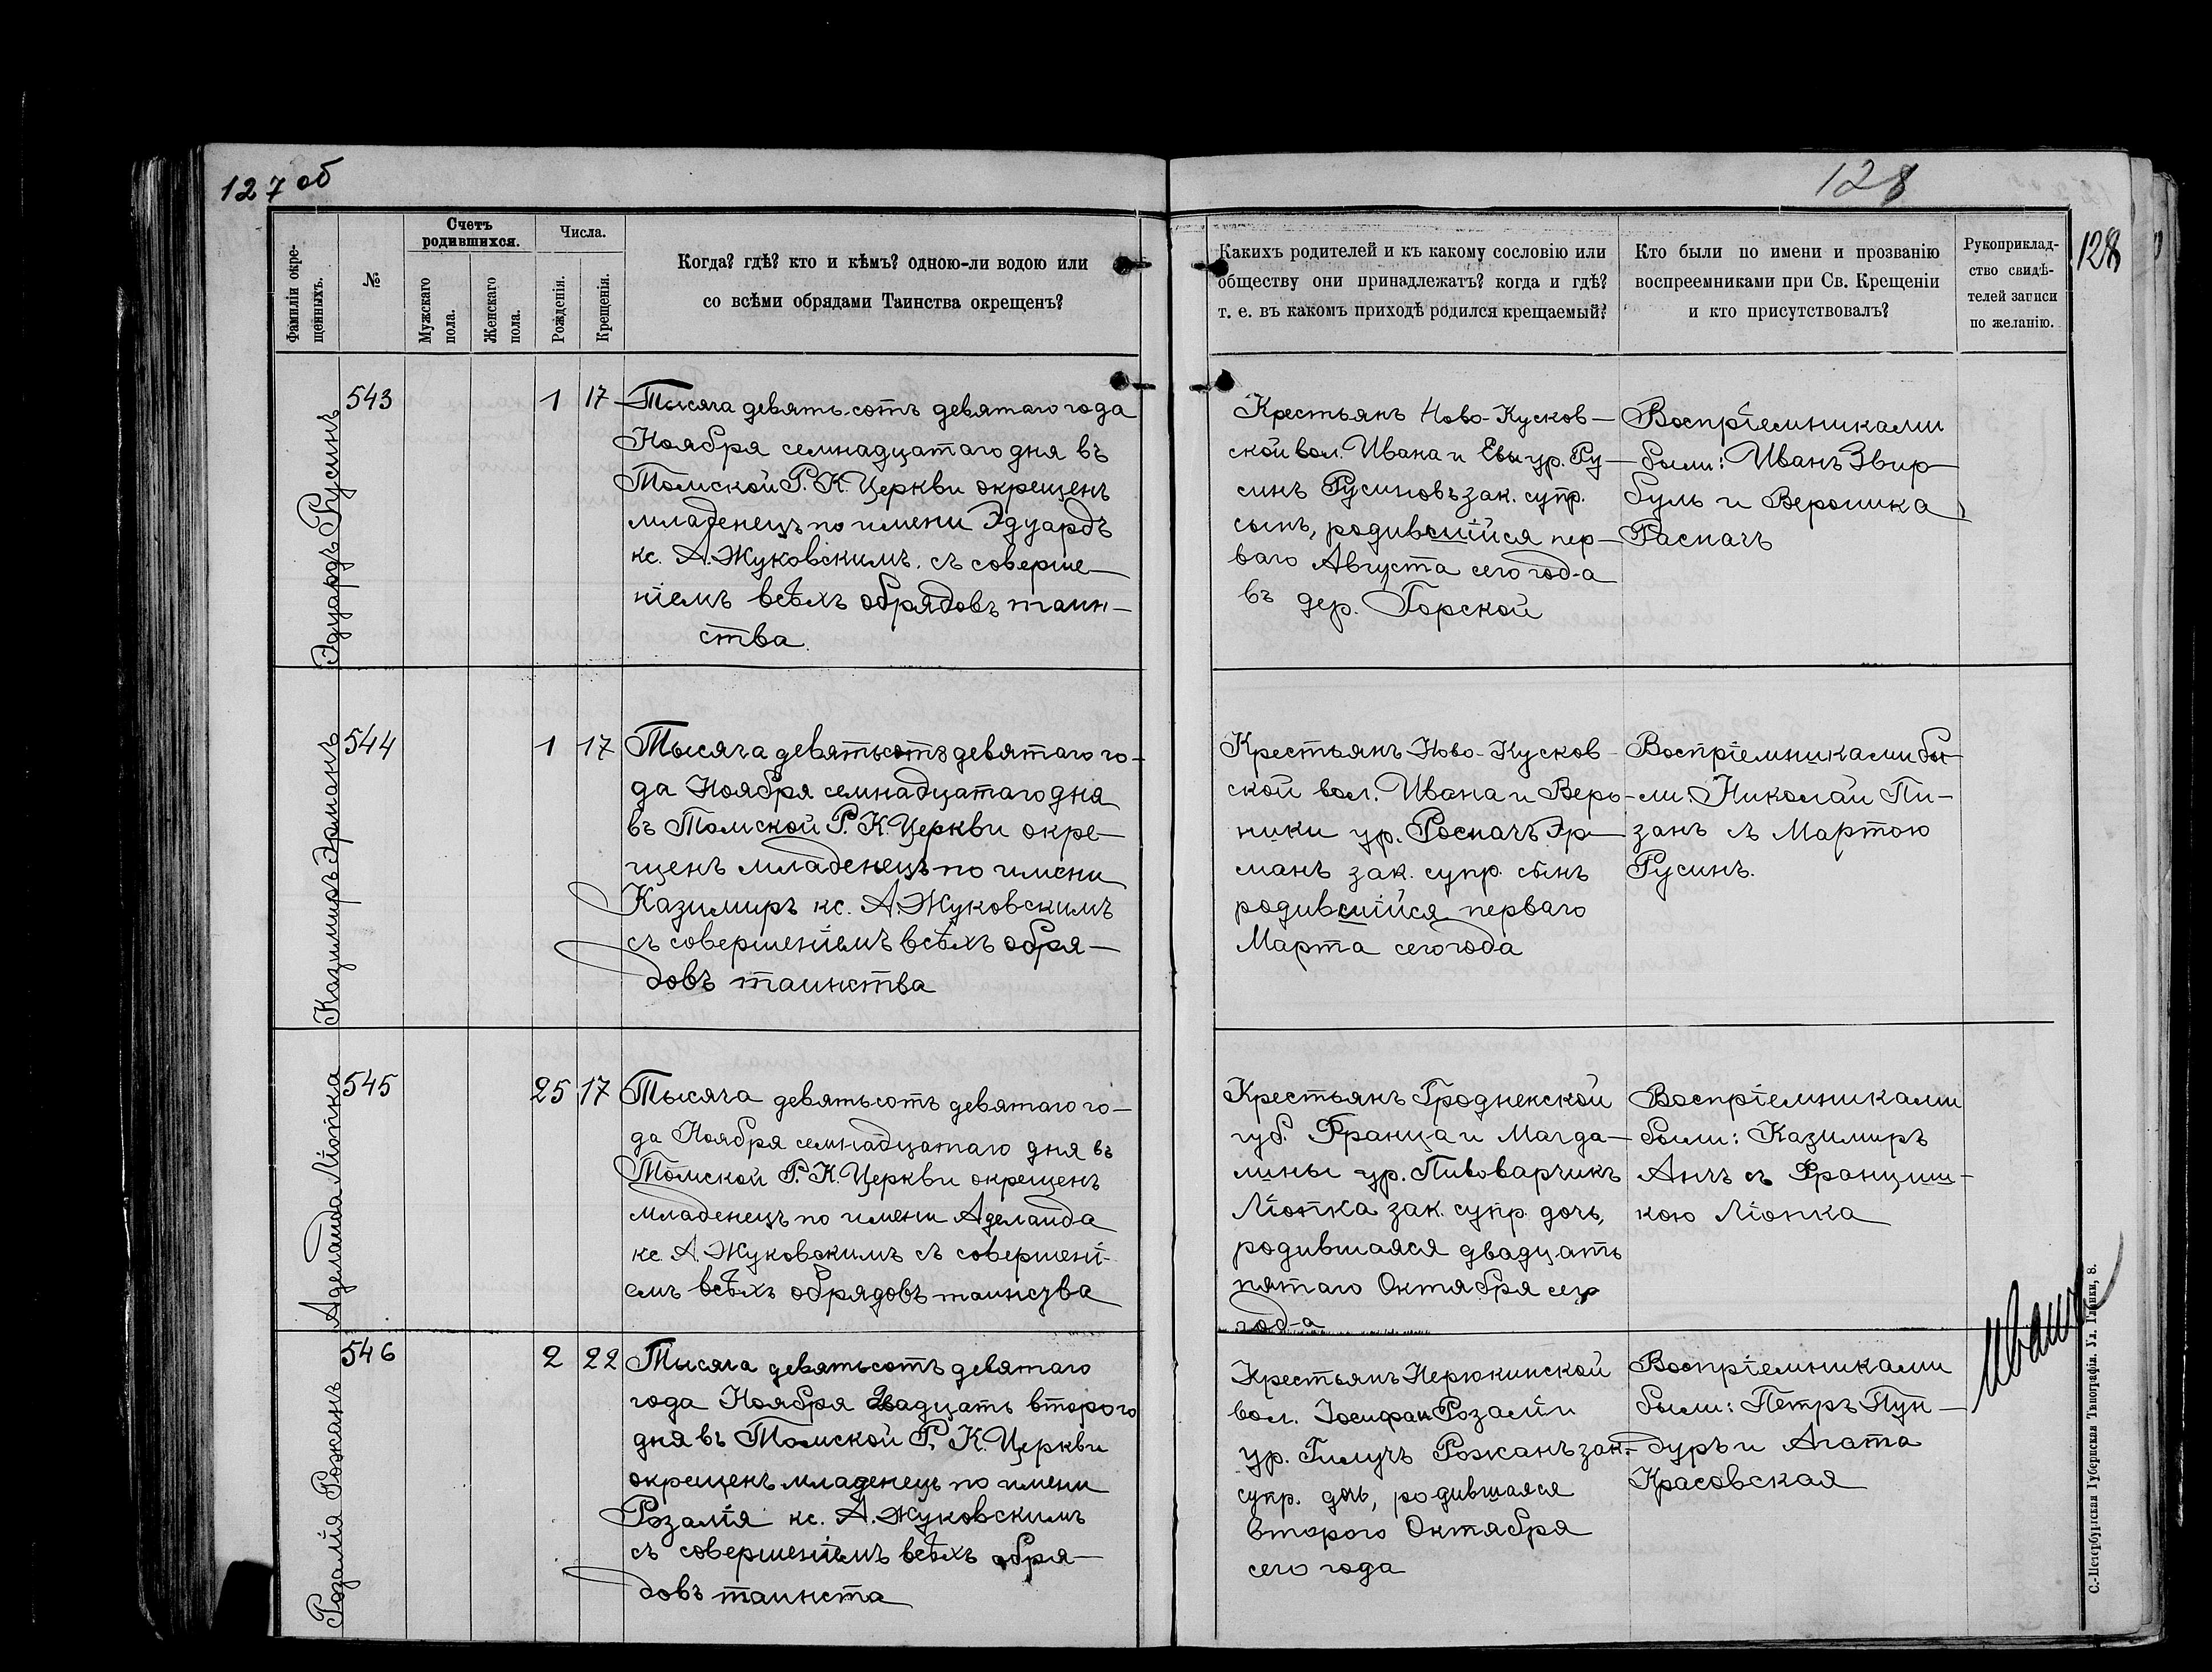 127 об
128
128
Фамиліи окре-
щенныхъ.
№
Счетъ
родившихся.
Мужскаго
пола.
Женскаго
пола.
Числа.
Рожденія.
Крещенія.
Когда? гдѣ? кто и кѣмъ? одною-ли водою или
со всѣми обрядами Таинства окрещенъ?
Какихъ родителей и къ какому сословію или
обществу они принадлежатъ? когда и гдѣ?
т. е. въ какомъ приходѣ родился крещаемый?
Кто были по имени и прозванію
воспреемниками при Св. Крещеніи
и кто присутствовалъ?
Рукоприклад-
ство свидѣ-
телей записи
по желанію.
Эдуардъ Русинъ
543
1
17
Тысяча девять-сотъ девятаго года
Ноября семнадцатаго дня въ
Томской Р. К. Церкви окрещенъ
младенецъ по имени Эдуардъ
кс. А. Жуковскимъ. съ соверше-
ніемъ всѣхъ обрядовъ таин-
ства.
Крестьянъ Ново-Кусков-
ской вол. Ивана и Евы ур. Ру-
синъ Русиновъ зак. супр.
сынъ, родившійся пер-
ваго Августа сего год-а
въ дер. Горской
Воспріемниками
были: Иванъ Звир-
буль и Вероника
Распачъ
Казимиръ Эрманъ
544
1
17
Тысяча девятьсотъ девятаго го-
да Ноября семнадцатаго дня
въ Томской Р. К. Церкви окре-
щенъ младенецъ по имени
Казимиръ кс. А. Жуковскимъ
съ совершеніемъ всѣхъ обря-
довъ таинства
Крестьянъ Ново-Кусков-
ской вол. Ивана и Веро-
ники ур. Роспачъ Эр-
манъ зак. супр. сынъ
родившійся перваго
Марта сего года
Воспріемниками бы-
ли: Николай Пи-
занъ съ Мартою
Русинъ.
Аделаида Ліопка
545
25
17
Тысяча девятьсотъ девятаго го-
да Ноября семнадцатаго дня въ
Томской Р. К. Церкви окрещенъ
младенецъ по имени Аделаида
кс. А. Жуковскимъ съ совершені-
емъ всѣхъ обрядовъ таинсзва
Крестьянъ Гродненской
губ. Франца и Магда-
лины ур. Пивоварчикъ
Ліопка зак. супр. дочь,
родившаяся двадцать
пятаго Октября сего
год-а
Воспріемниками
были: Казимиръ
Анчъ съ Францишкою Ліопка
Розалія Рожанъ
546
2
22
Тысяча девятьсотъ девятаго
года Ноября двадцать второго
дня въ Томской Р. К. Церкви
окрещенъ младенецъ по имени
Розалія кс. А. Жуковскимъ
съ совершеніемъ всѣхъ обря-
довъ таинста
Крестьянъ Нерюкинской
вол. Іосифа и Розаліи
ур. Гилучъ Рожанъ зак.
супр. дочь, родившаяся
второго Октября
сего года
Воспріемниками
были: Петръ Пун-
дуръ и Агата
Красовская
С.-Петербургская Губернская Типографія. Ул. Глинки, 8.